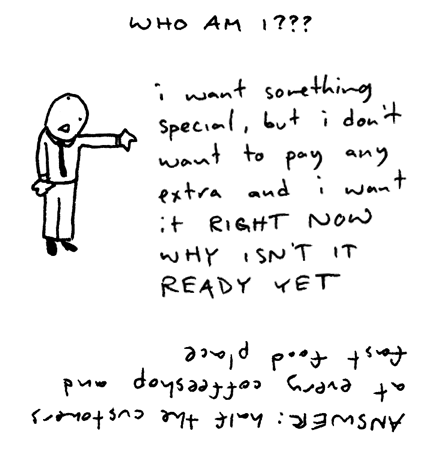 WHO AM I???
i want something
special, but i don't
want to pay any
extra and i want
it RIGHT NOW
WHY ISN'T IT
READY YET
ANSWER: half the customers
at every coffeeshop and
fast food place